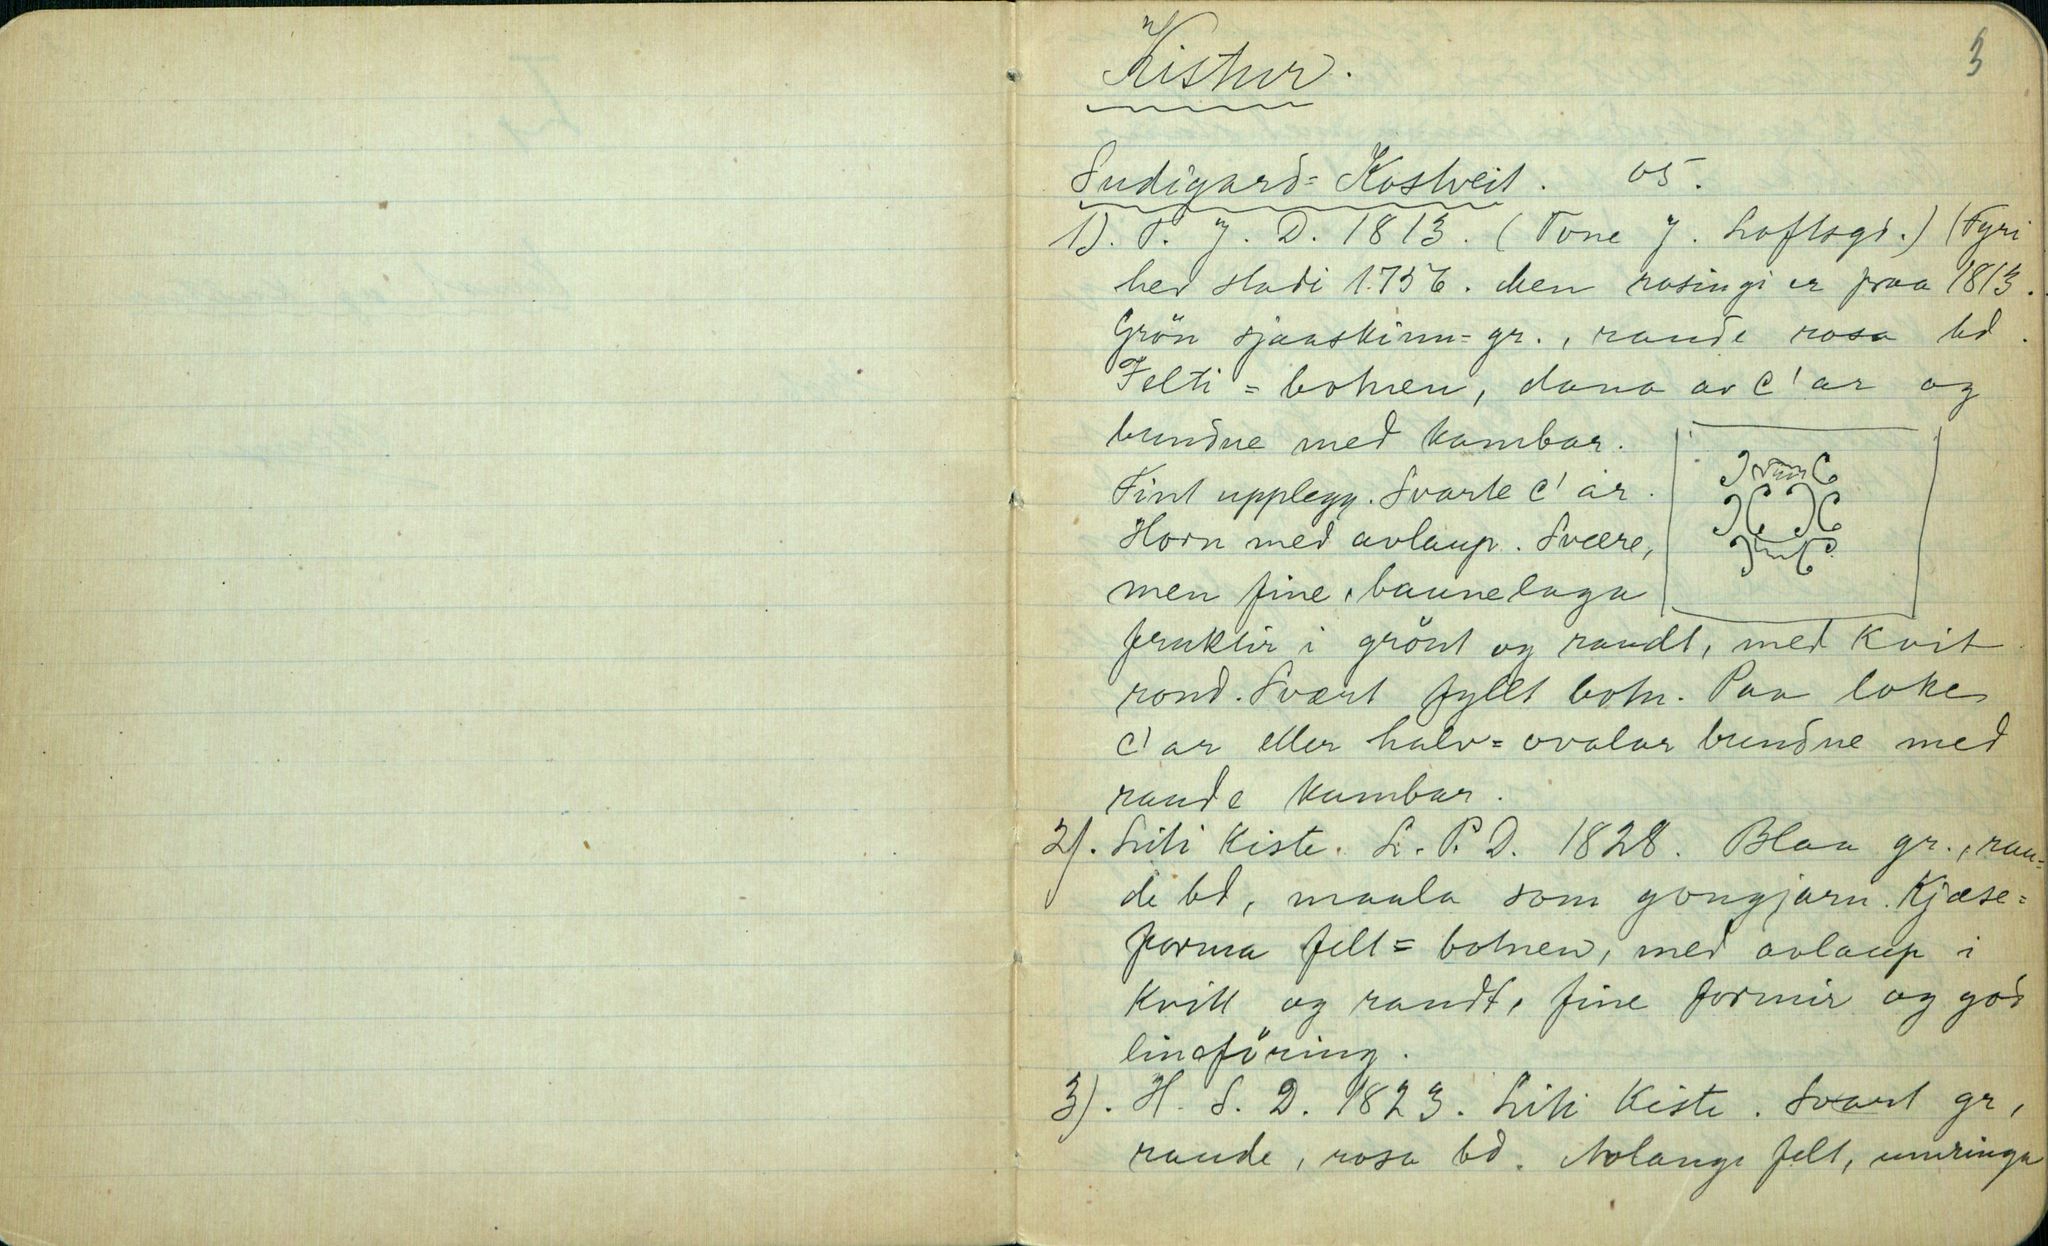 3
Kistur.
Sudigard-Kostveit. 05.
1). T. J. D. 1813. (Tone J. Loftsgd.) (Fyri
her stadi 1756. Men rosingi er fraa 1813.
Grön sjaaskinn=gr., raude rosa bd.
Felti=botnen, dana av c'ar og
bundne med kambar.
Fint upplegg. Svarte c'ar.
Horn med avlaup. Svære,
men fine, baunelaga
fruktir i grönt og raudt, med kvit
rond. Svært fyllt botn. Paa loket
c'ar eller halv=ovalar bundne med
raude kambar.
2). Liti kiste. L. P. D. 1828. Blaa gr., rau=
de bd, maala som gongjarn. Kjøse=
forma felt=botnen, med avlaup i
kvitt og raudt, fine formir og god
lineföring.
3). H. S. D. 1823. Liti kiste. Svart gr,
raude, rosa bd. Avlange felt, umringa